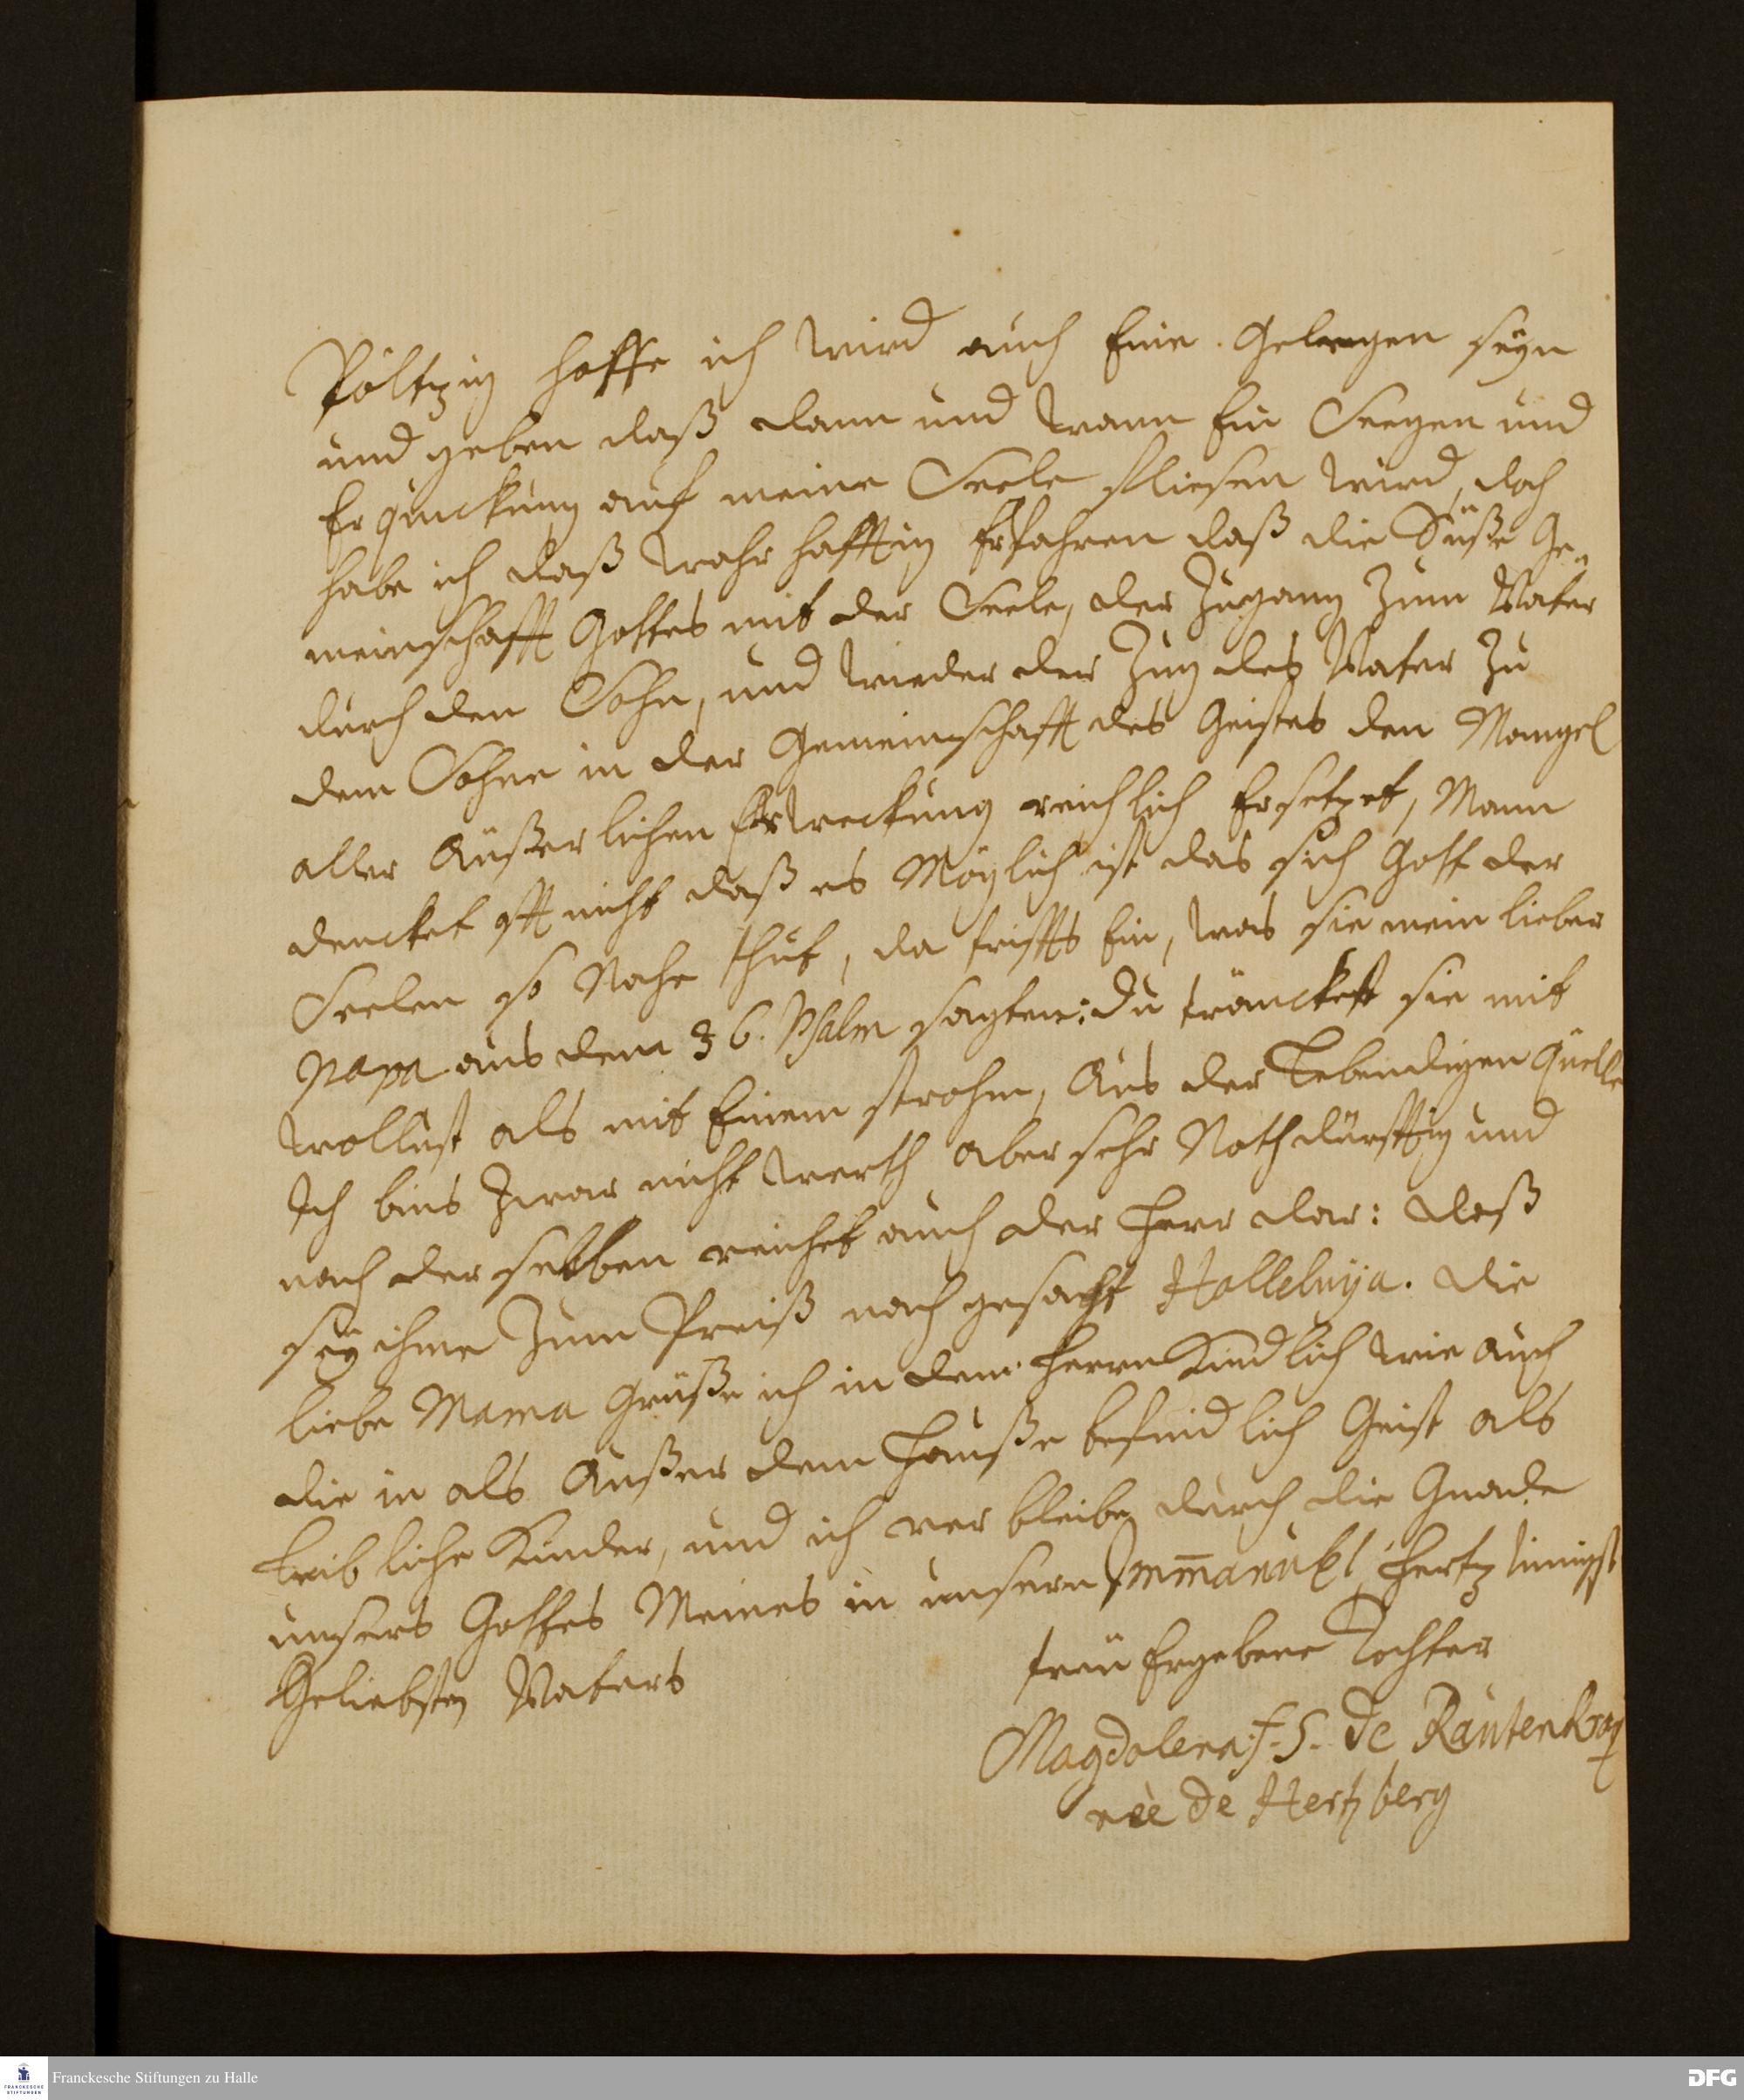 Pöltzig hoffe ich wird auch Eine gelegen seyn
und geben daß dann und wann Ein Seegen und
Erquickung auf meine Seele fliesen wird, doch
habe ich daß wahr hafftig Erfahren daß die Süße Ge-
meinschafft Gottes mit der Seele, der Zugang Zum Vater
durch den Sohn, und wieder der Zug des Vater Zu
dem Sohne in der Gemeinschafft des Geistes den Mangel
aller Äußerlichen Erweckung reichlich Ersetzet, Mann
dencket offt nicht daß es Möglich ist das sich Gott der
Seelen so Nahe thut, da triffts Ein, was sie mein lieber
Papa aus dem 36. Psalm sagten: du tränckest sie mit
wollust als mit Einem strohm, Aus der Lebendigen Quelle
Ich bins Zwar nicht werth aber sehr Nothdürfftig und
nach der selben reichet auch der Herr dar: daß
sey ihme Zum Preiß nach gesagt Halleluija. die
liebe Mama Grüße ich in dem Herrn Kindlich wie auch
die in als Außer dem Hauße befindlich Geist als
Leibliche Kinder, und ich ver bleibe durch die Gnade
unsers Gottes Meines in unsern Immanuel Hertz innigst
Geliebsten Vaters
treu Ergebene Tochter
Magdalena: F. S. de Rautenkraz
neè de Hertzberg
Franckesche Stiftungen zu Halle
FRANCKESCHE
STIFTUNGEN
DFG